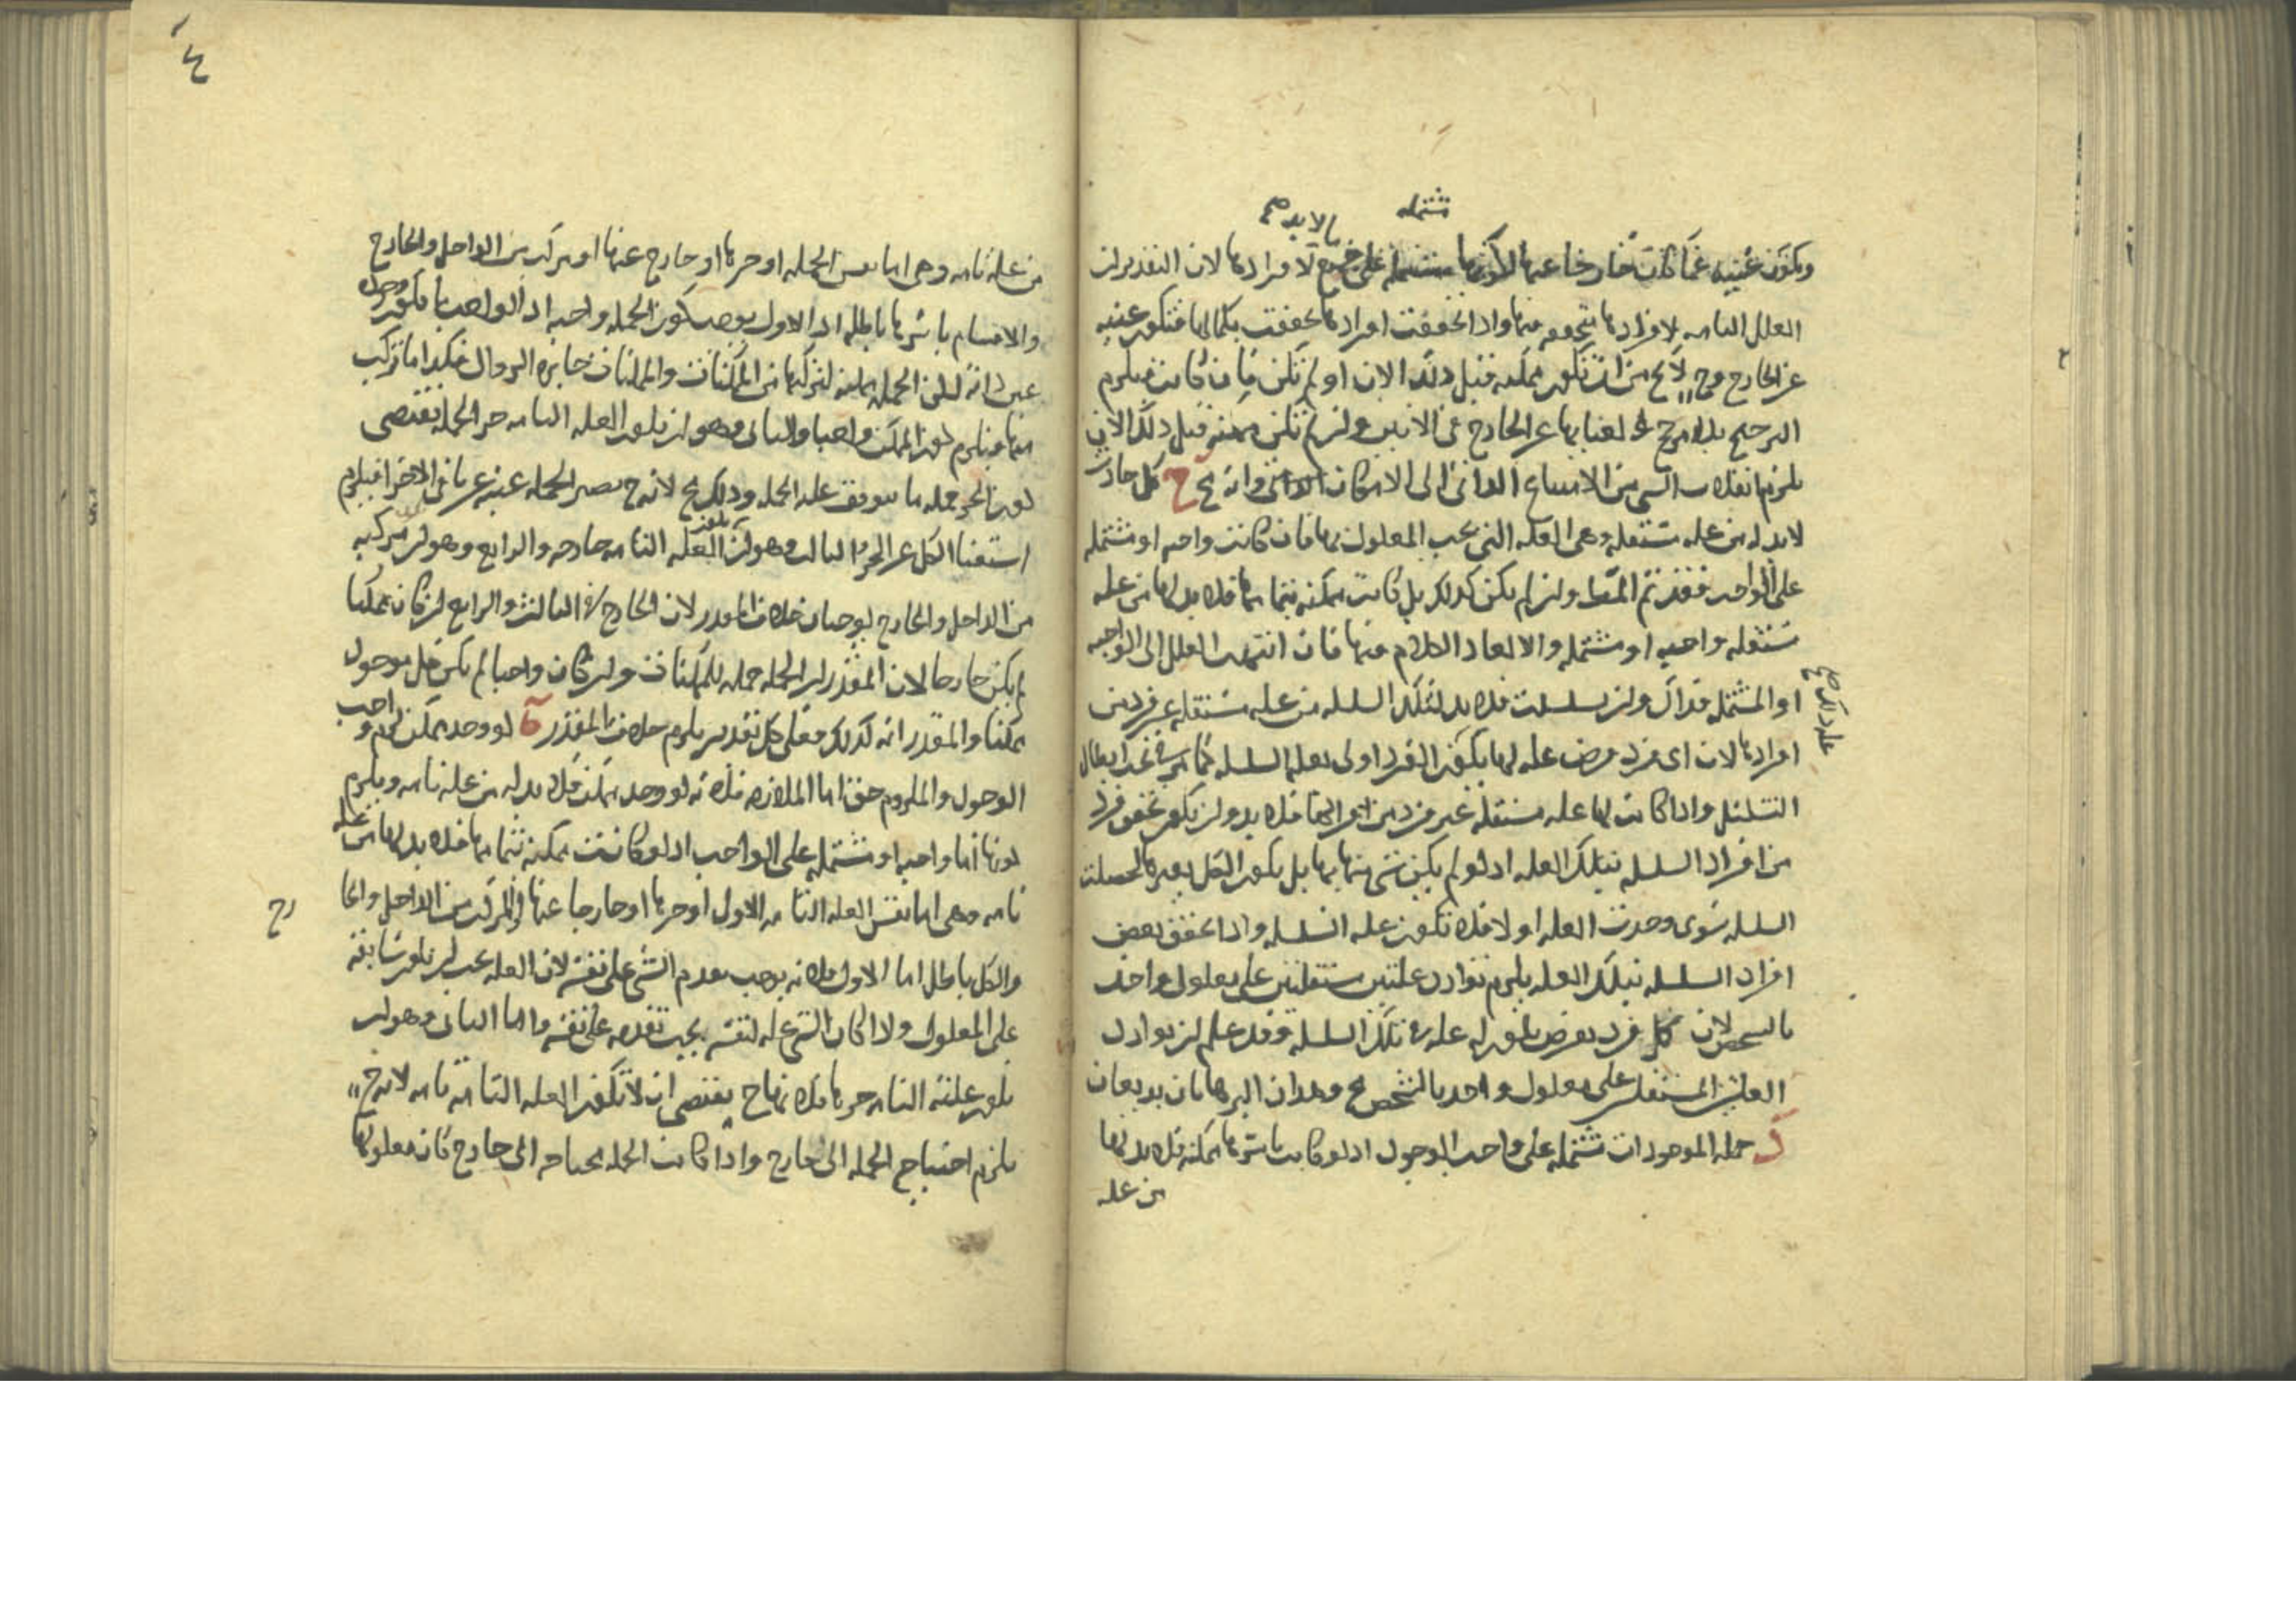 مشتمله
ما لا بد صح
وىكون غنيه عما كانت خارجا عنها لافرادها لان التقدير ان
العلل التامه لافرادها متحققه فيها واذا تحققت افرادها تحققت بكمالها فتكون غنيه
عن الخارج وح لا يخ من ان تكون ممكنه قبل ذلك الان او لم تكن فان كانت فيلزم
الترجيح بلا مرجح لغنايها عن الخارج فى الانين وان لم تكن ممكنه قبل ذلك الان
يلزم انقلاب الشى من الامتناع الذاتى الى الامكان الذاتى وانه مح ح كل حادث
لابد له من عله مستقله وهى العله التى يجب المعلول بها فان كانت واجبه او مشتمله
على الواجب فقد تم المط وان لم يكن كذلك بل كانت ممكنه بتمامها فلا بد لها من عله
مستقله واجبه او مشتمله والا لعاد الكلام فيها فان انتهت العلل الى الواجبه
او المشتمله فذاك وان تسلسلت فلا بد لتلك السلسله من عله مستقله غير فرد من
افرادها لان اى فرد فرض عله لها يكون الفرد اولى بعله السلسله كما مر فى ابطال
التسلسل واذا كانت لها عله مستقله غير فرد من افرادها فلا بد وان يكون تحقق فرد
من افراد السلسله بتلك العله اذ لو لم يكن شى منها بها بل يكون الكل بغيرها لحصلت
السلسله سوى وجدت العله او لا فلا تكون عله السلسله واذا تحقق بعض
افراد السلسله بتلك العله يلزم توارد علتين مستقلتين على معلول واحد
بالشخص لان كل فرد يفرض يكون له عله فى تلك السلسله وقد علم ان توارد
العلتين المستقلتين على معلول واحد بالشخص مح وهذان البرهانان بديعان
جمله الموجودات مشتمله على واجب الوجود اذ لو كانت باسرها ممكنه فلا بد لها
من عله
٤
من عله تامه وهى اما نفس الجمله او جزءها او خارج عنها او مركب من الداخل والخارج
والاقسام باسرها باطله اذ الاول يوجب كون الجمله واجبه اذ الواجب ما يكون وجوده
عين ذاته لكن الجمله ممكنه لتركبها من الممكنات والممكنات جايزه الزوال فكذا ما تركب
منها فيلزم كون الممكن واجبا والثانى وهو ان يكون العله التامه جزء الجمله يقتضى
كون الجزء جمله ما يتوقف عليه الجمله وذلك مح لانه ح يصير الجمله غنيه عن باقى الاجزا فيلزم
استغنا الكل عن الجزء والثالث وهو ان يكون العله التامه خارجه والرابع وهو ان مركبه
من الداخل والخارج يوجبان خلاف المقدر لان الخارج فى الثالث والرابع ان كان ممكنا
لم يكن خارجا لان المقدر ان الجمله جمله الممكنات وان كان واجبا لم يكن كل موجود
ممكنا والمقدر انه كذلك فعلى كل تقدير يلزم خلاف المقدر لو وجد ممكن لزم واجب
الوجود والملزوم حق اما الملازمه فلانه لو وجد ممكن فلا بد له من عله تامه ويلزم
كونها اما واجبه او مشتمله على الواجب اذ لو كانت ممكنه بتمامها فلا بد لها من عله
تامه وهى اما نفس العله التامه الاول او جزءها او خارجا عنها او المركب من الداخل والخا
رج
والكل باطل اما الاول فلانه يوجب تقدم الشى على نفسه لان العله يجب ان يكون سابقه
على المعلول ولا كان الشى عله لنفسه يجب تقدمه على نفسه واما الثانى وهو ان
يكون علته التامه جزءها فلانها ح يقتضى ان لا تكون العله التامه تامه لانه ح
يلزم احتياج الجمله الى خارج واذا كانت الجمله محتاجه الى خارج كان معلولها